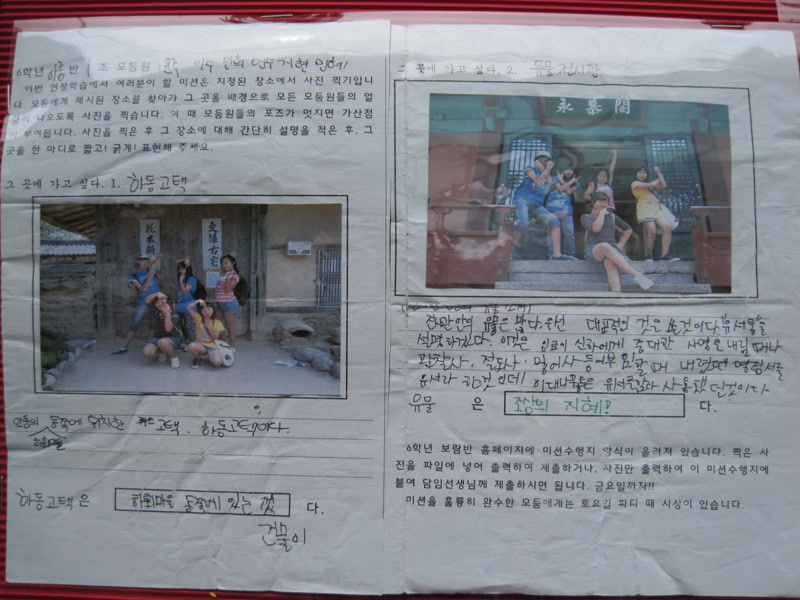 6학년 반 조 모둠원 :
이번 현장학습에서 여러분이 할 미션은 지정된 장소에서 사진 찍기입니
다. 모둠에게 제시된 장소를 찾아가 그 곳을 배경으로 모든 모둠원들의 얼
굴이 나오도록 사진을 찍습니다. 이 때 모둠원들의 포즈가 멋지면 가산점
이 부여됩니다. 사진을 찍은 후 그 장소에 대해 간단히 설명을 적은 후, 그
곳을 한 마디로 짧고! 굵게! 표현해 주세요.
그 곳에 가고 싶다. 1. 하동고택
花木
文 古宅
안동의 하회마을 동쪽에 위치한 고택. 하동고택이다.
하동고택은 하회마을 동쪽에 있는 건물이 다.
그 곳에 가고 싶다. 2. 유물 전시관
永慕閣
유물은 많다. 우선 대표적인 것은 이것이다. 유서통을
설명하겠다. 이것은 임금이 신하에게 중대한 사명을 내릴 때나
관찰사. 절도사. 방어사 등이 부임할 때 내렸던 명령서를
유서라 한 것인데 이 대나무통은 유서통으로 사용했던 것이다
유물 은 조상의 지혜! 다.
6학년 보람반 홈페이지에 미션수행지 양식이 올려져 있습니다. 찍은 사
진을 파일에 넣어 출력하여 제출하거나, 사진만 출력하여 이 미션수행지에
붙여 담임선생님께 제출하시면 됩니다. 금요일까지!!
미션을 훌륭히 완수한 모둠에게는 토요일 파티 때 시상이 있습니다.